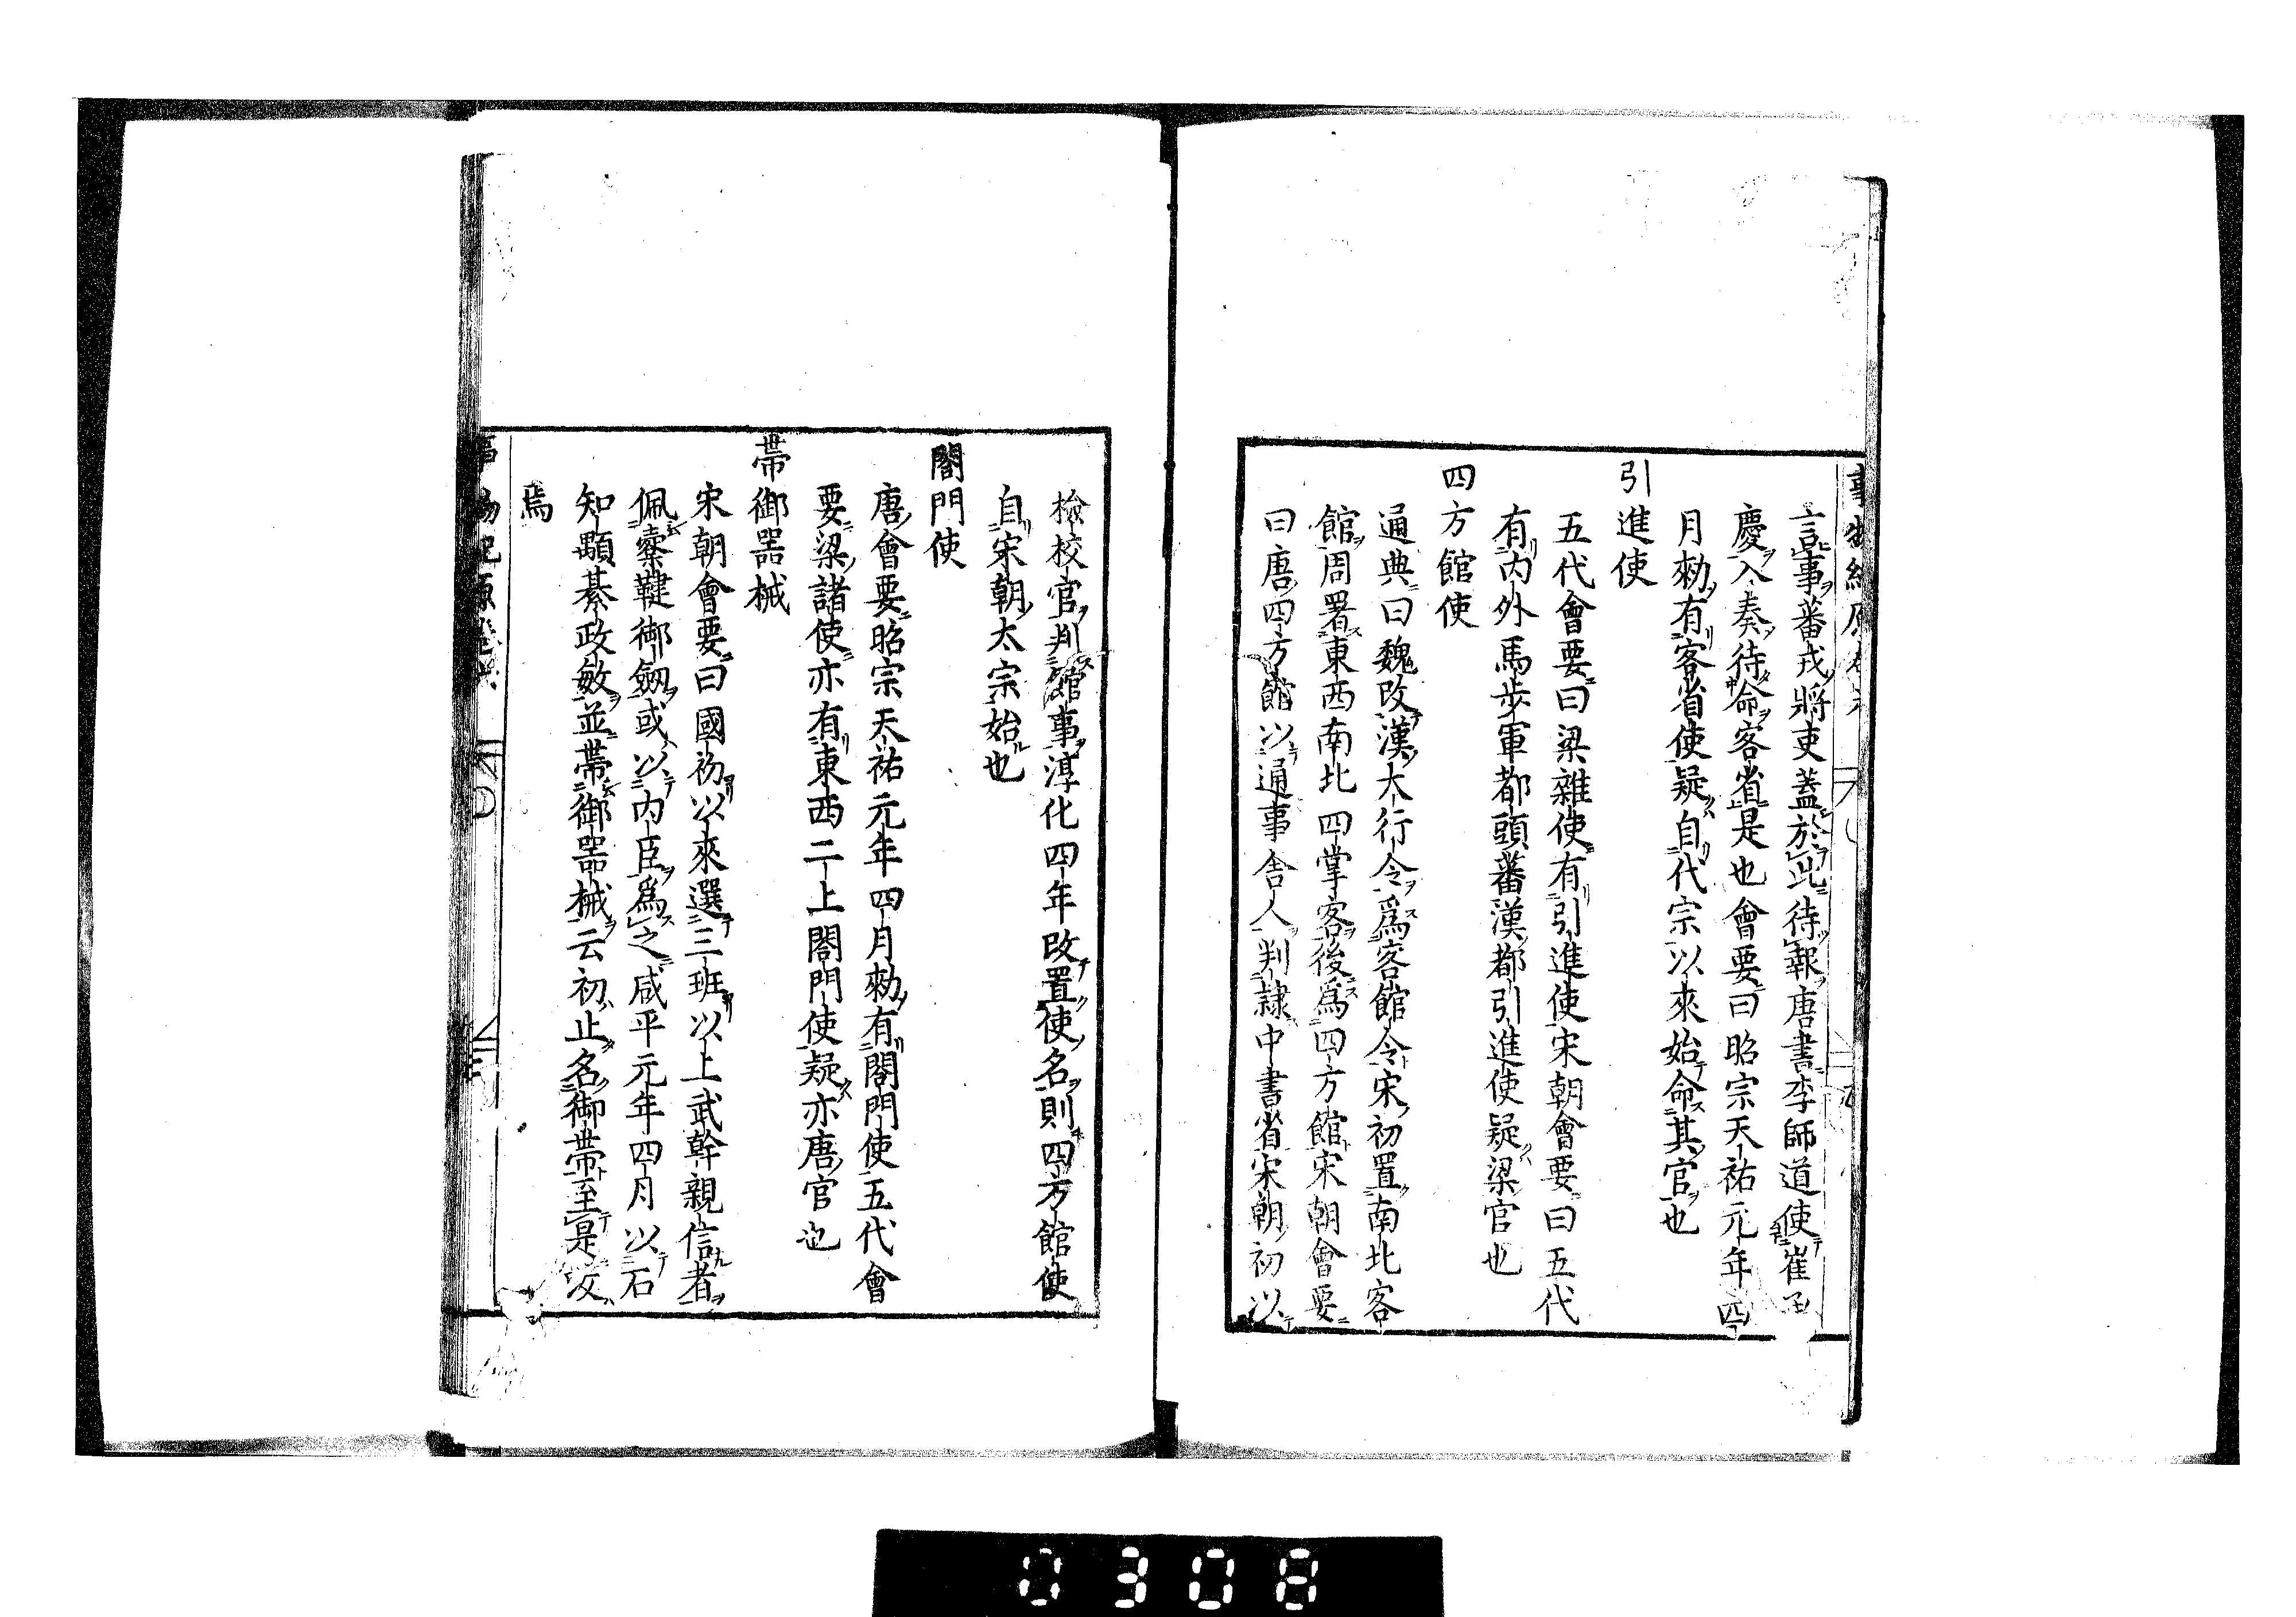 言事蕃戎將吏蓋於此待報唐書李師道使崔承
慶入奏待命客省是也會要曰昭宗天祐元年四
月勑有客省使疑自代宗以來始命其官也
引進使
五代會要曰梁雜使有引進使宋朝會要曰五代
有內外馬步軍都頭蕃漢都引進使疑梁官也
四方館使
通典曰魏改漢大行令爲客館令宋初置南北客
館周署東西南北四掌客後爲四方館宋朝會要
曰唐四方館以通事舍人判隷中書省宋朝初以
檢校官判館事淳化四年改置使名則四方館使
自宋朝太宗始也
閤門使
唐會要昭宗天祐元年四月勑有閤門使五代會
要梁諸使亦有東西二上閤門使疑亦唐官也
帶御噐械
宋朝會要曰國初以來選三班以上武幹親信者
佩櫜鞬御劔或以內臣爲之咸平元年四月以石
知顒綦政敏並帶御噐械云初止名御帶至是攺
焉
事物紀原卷六
0308